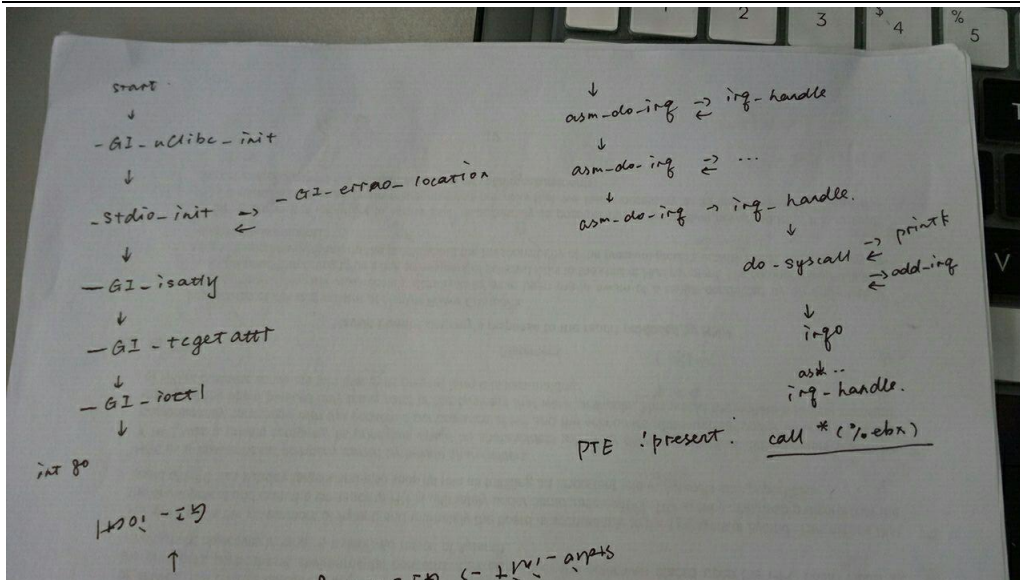 start
↓
-GI_uClibc_init
↓
-stdio_init ⇄ -GI_errno_location
↓
-GI_isatty
↓
-GI_tcgetattr
↓
-GI_ioctl
↓
int 80
GI-ioctl
↑
↓
asm_do_irq ⇄ irq_handle
↓
asm_do_irq ⇄ ...
↓
asm_do_irq → irq_handle.
↓
do_syscall ⇄ printk
⇄ add_irq
↓
irq0
irq_handle.
PTE !present: call *(%ebx)
2
3
$
4
%
5
V